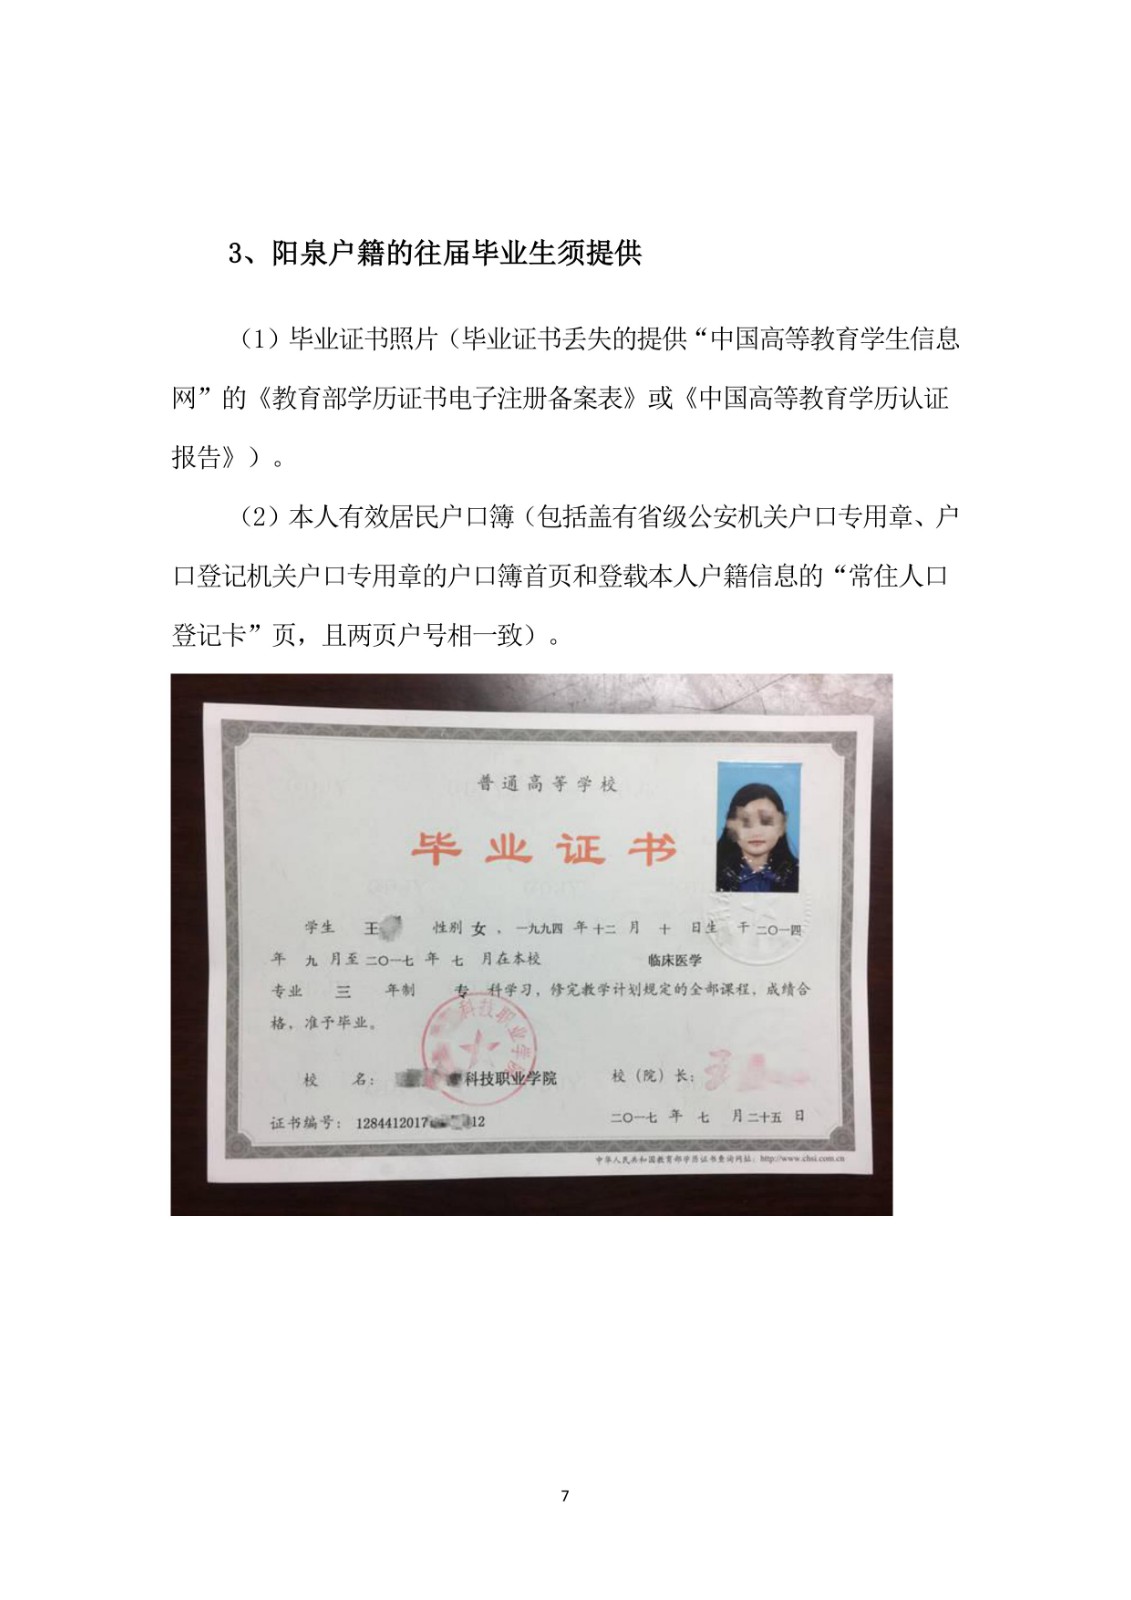 3、阳泉户籍的往届毕业生须提供
（1）毕业证书照片（毕业证书丢失的提供“中国高等教育学生信息
网”的《教育部学历证书电子注册备案表》或《中国高等教育学历认证
报告》）。
（2）本人有效居民户口簿（包括盖有省级公安机关户口专用章、户
口登记机关户口专用章的户口簿首页和登载本人户籍信息的“常住人口
登记卡”页，且两页户号相一致）。
普通高等学校
毕业证书
学生 王 性别 女 ，一九九四 年 十二 月 十 日生，于 二〇一四
年 九 月至 二〇一七 年 七 月在本校 临床医学
专业 三 年制 专 科学习，修完教学计划规定的全部课程，成绩合
格，准予毕业。
科技职业学院
校 名： 科技职业学院 校（院）长：
证书编号： 1284412017 12 二〇一七 年 七 月 二十五 日
中华人民共和国教育部学历证书查询网址：http://www.chsi.com.cn
7